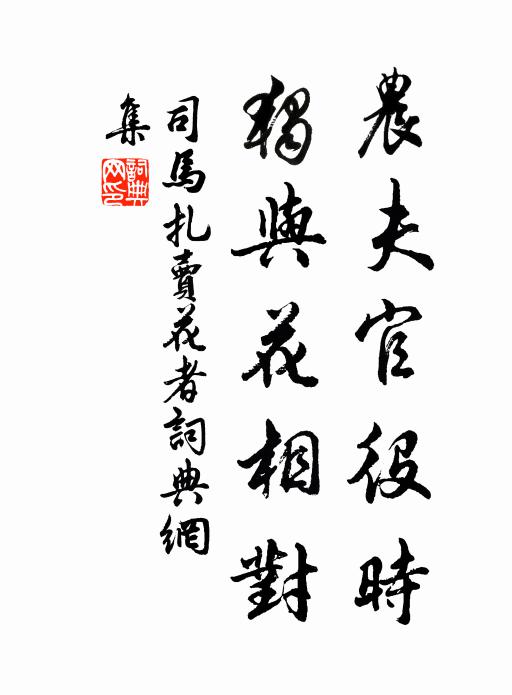 農夫官役時
獨與花相對
司馬扎賣花者詞典網
集
詞典
网印